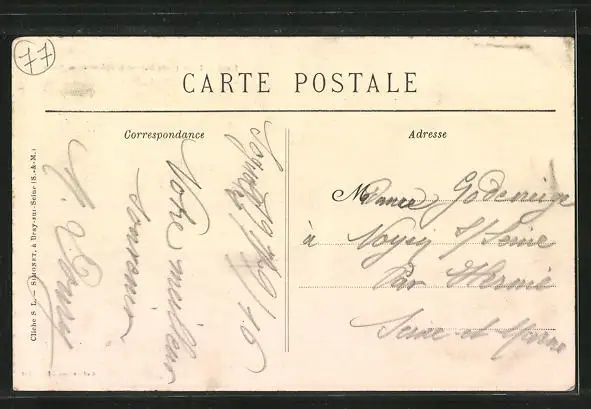 77
CARTE POSTALE
Correspondance
Adresse
Cliché S. L. — SIMONET, à Bray-sur-Seine (S.-&-M.)
16
Votre meilleur
souvenir
Madame
à Noyen s/Seine
Par Hermé
Seine et Marne